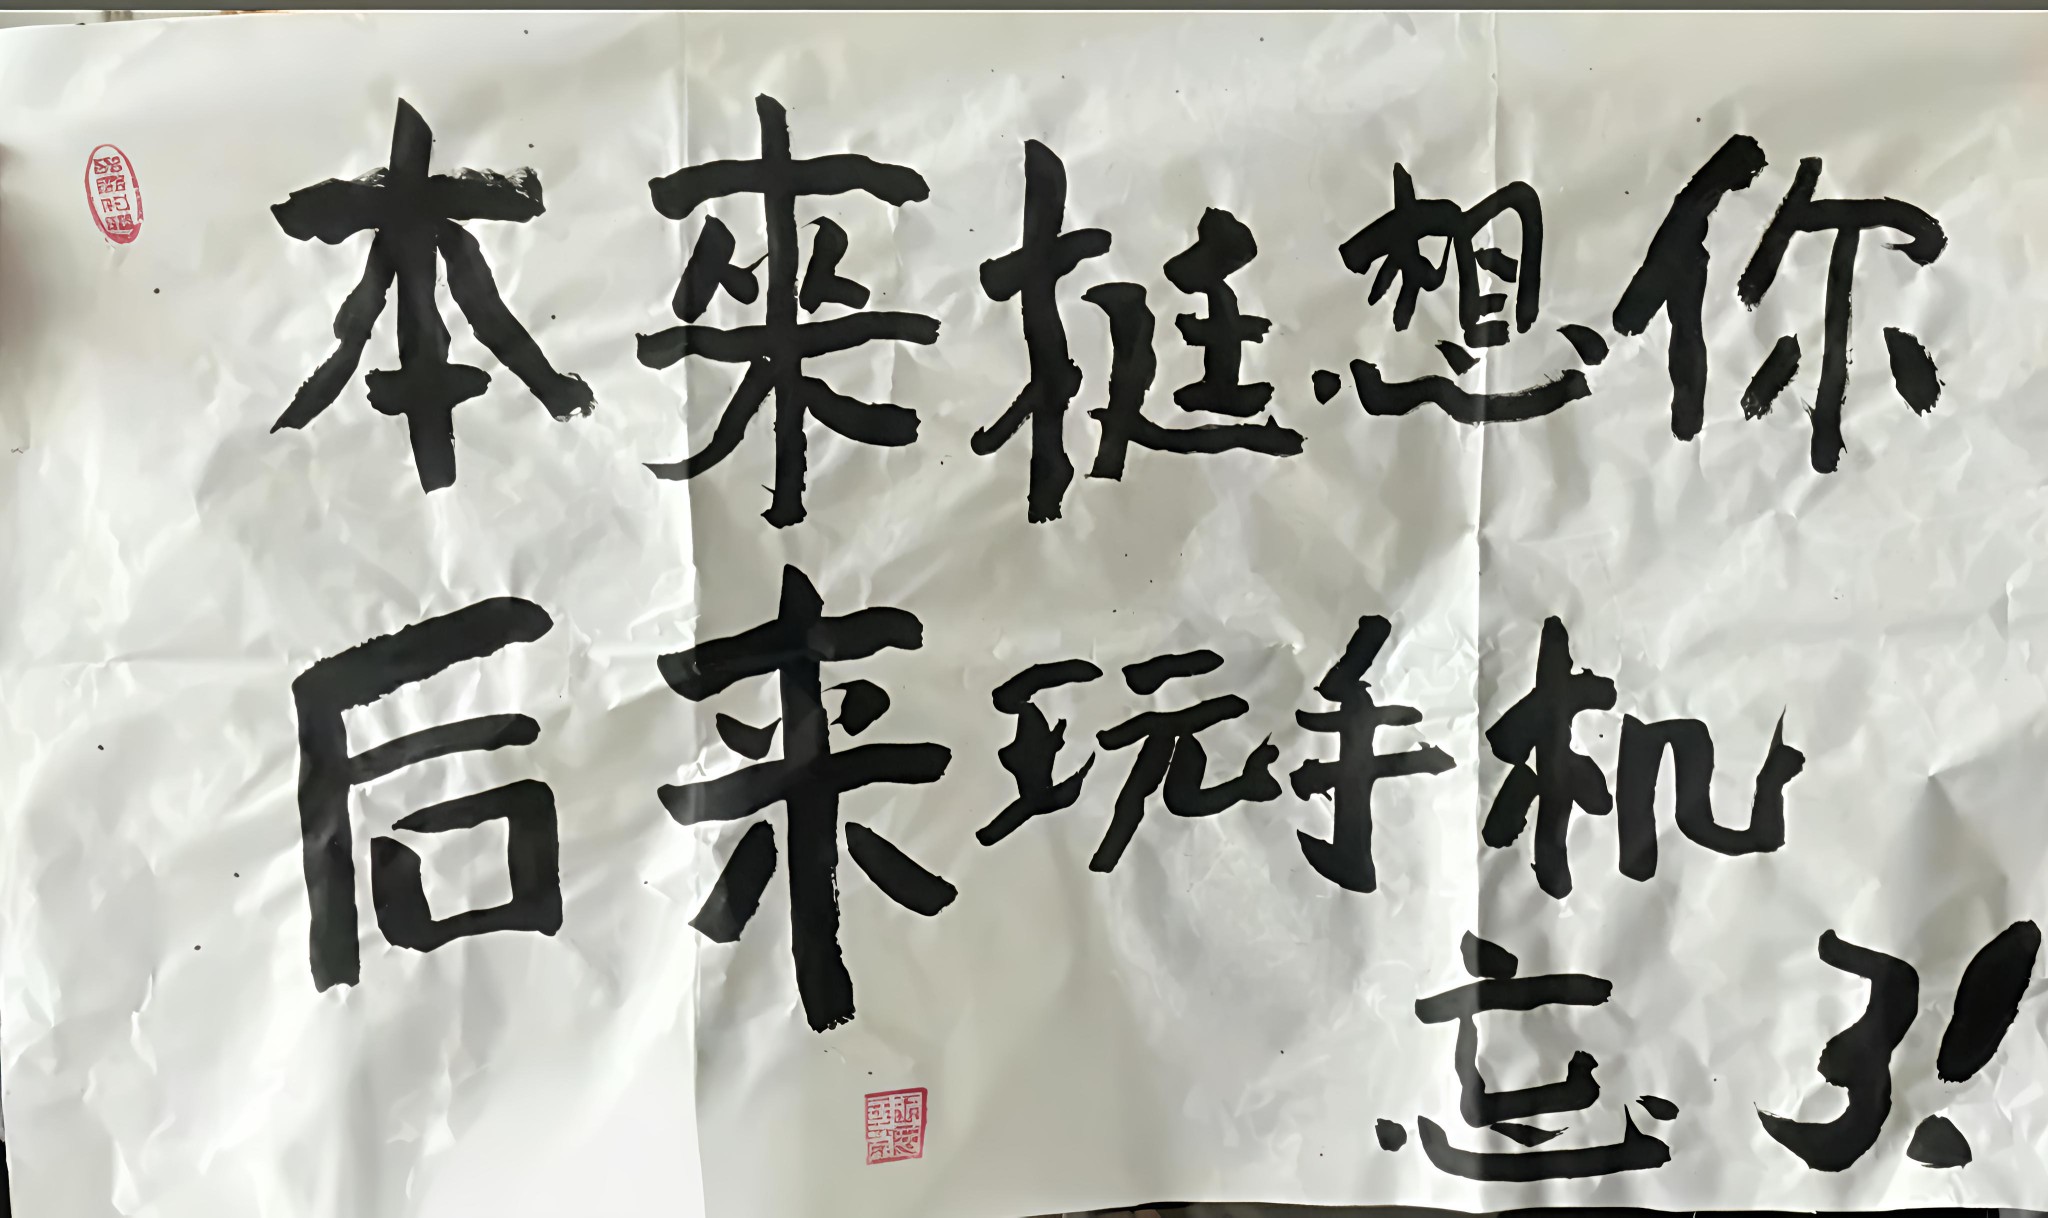 本來挺想你
后来玩手机
忘了!